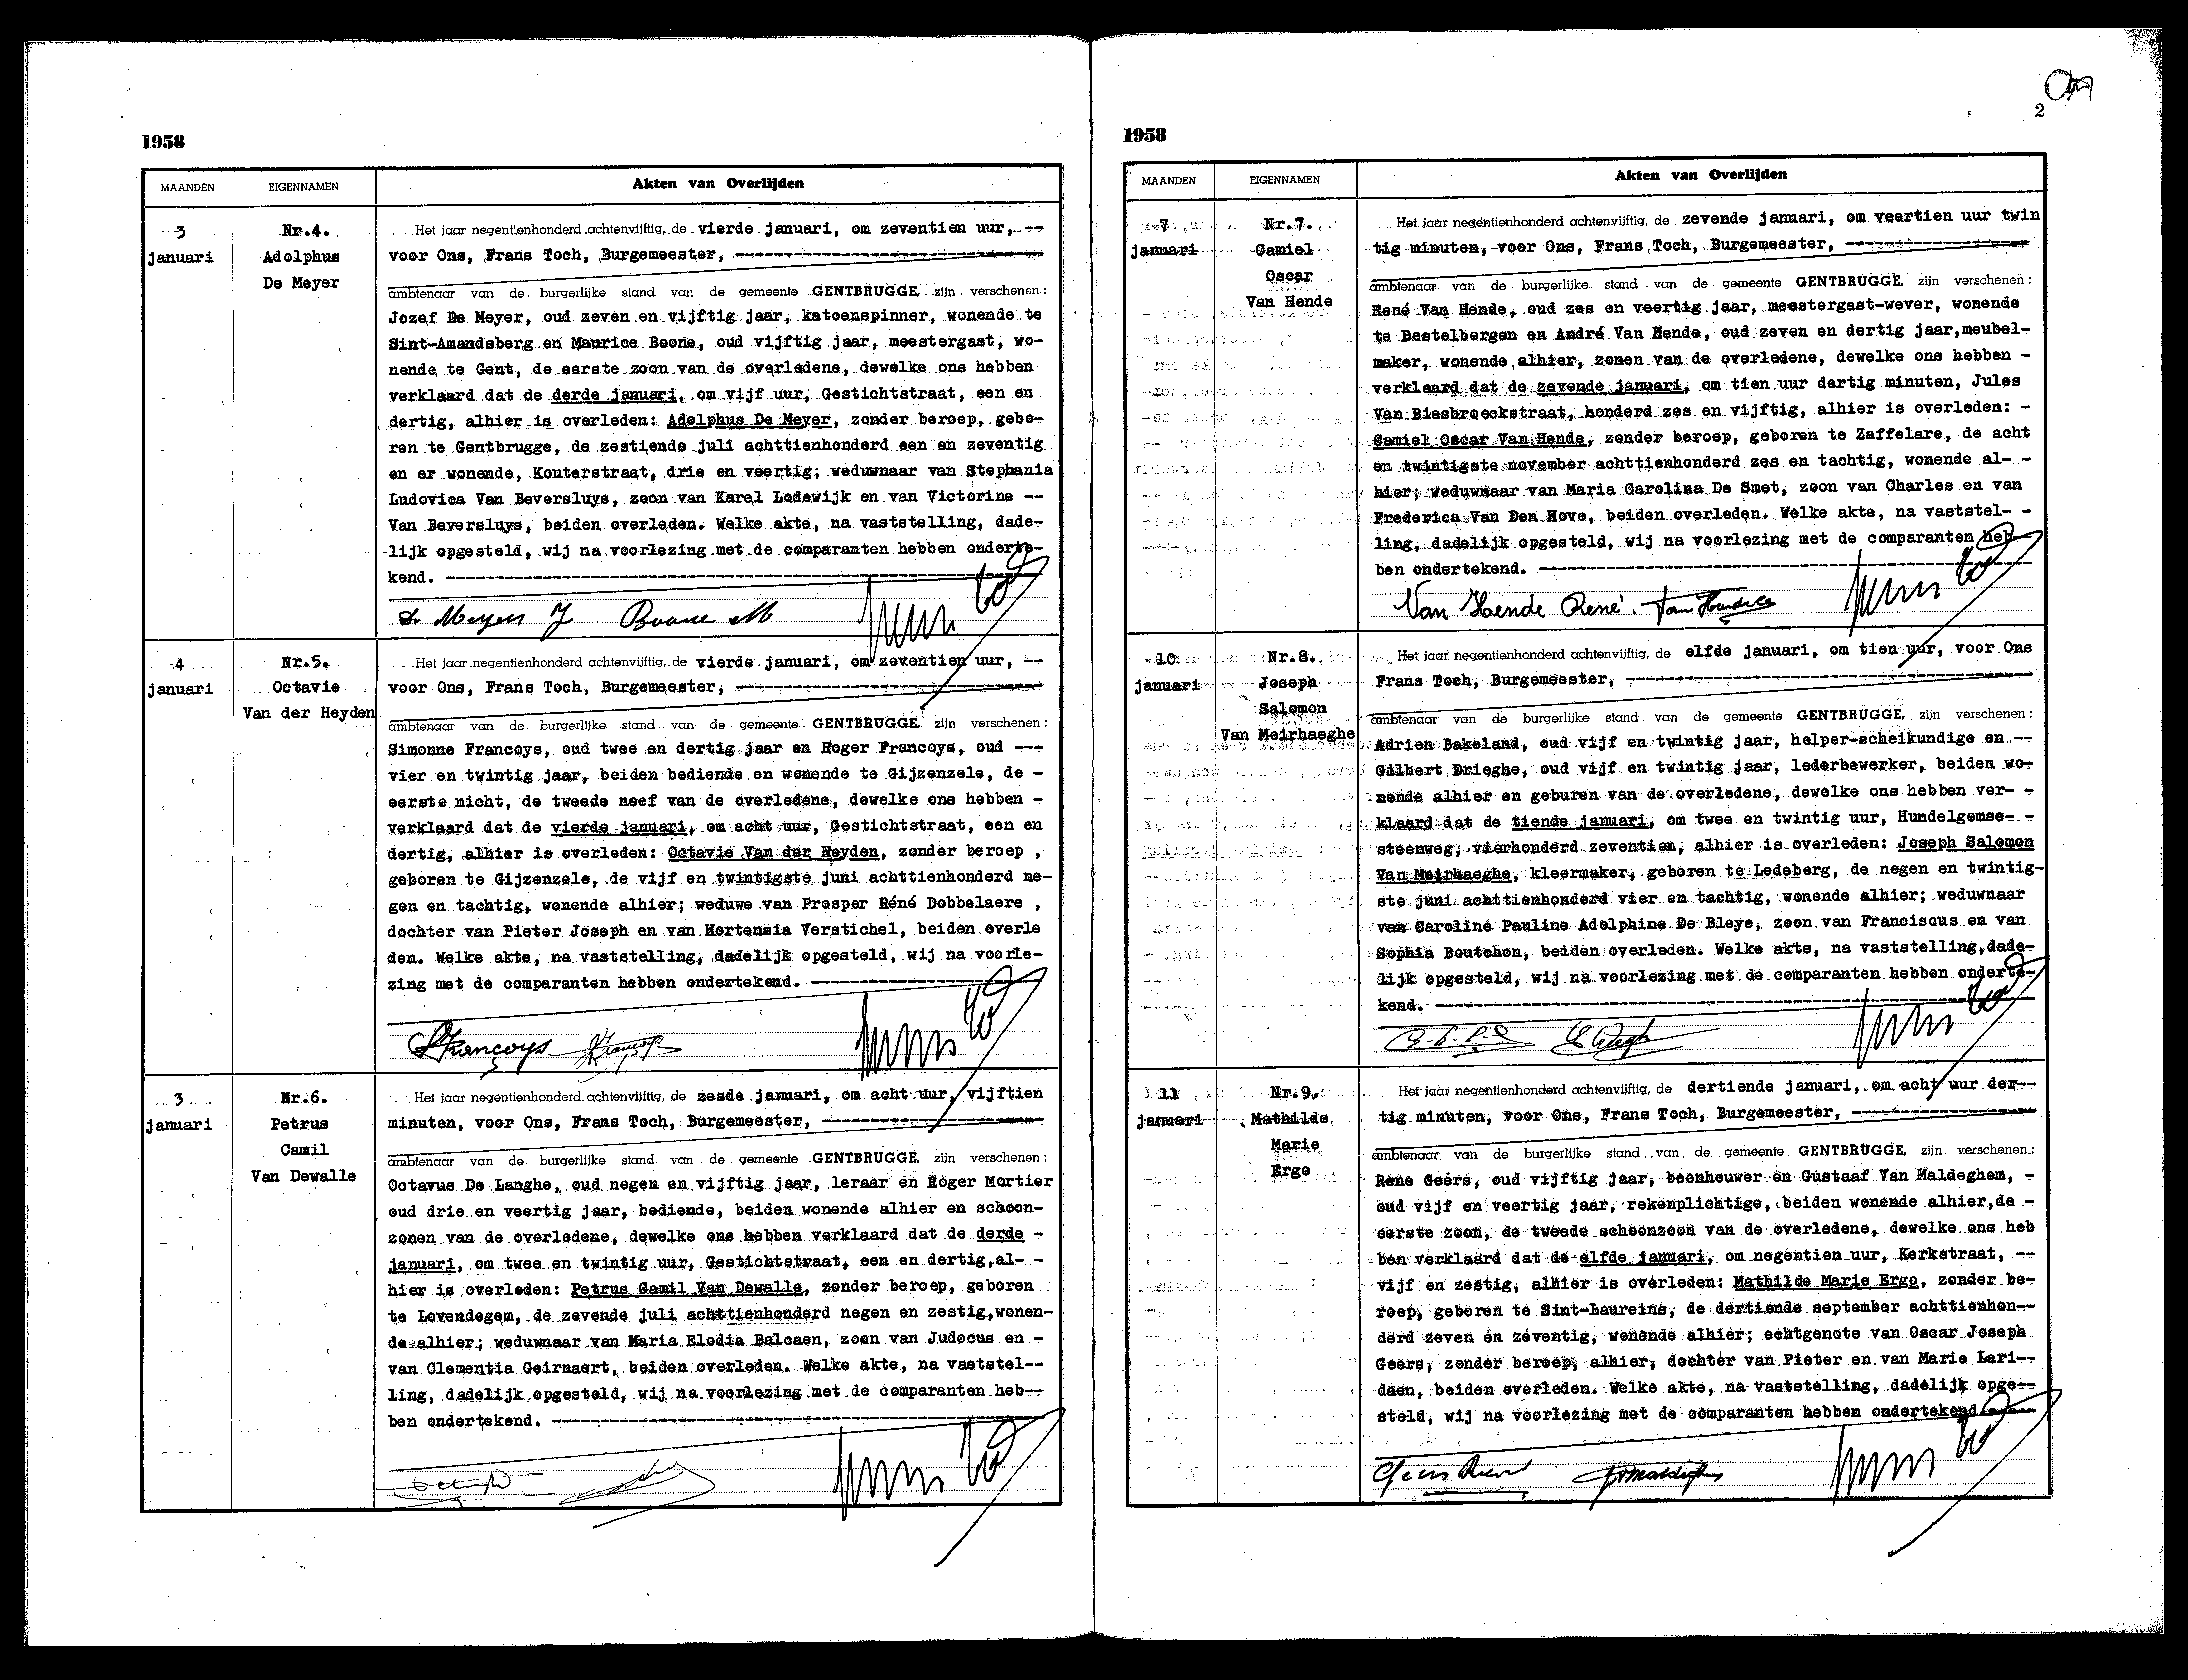 1958
MAANDEN EIGENNAMEN Akten van Overlijden
3 januari
Nr.4.
Adolphus
De Meyer
Het jaar negentienhonderd achtenvijftig, de vierde januari, om zeventien uur, --
voor Ons, Frans Toch, Burgemeester, ---
ambtenaar van de burgerlijke stand van de gemeente GENTBRUGGE, zijn verschenen:
Jozef De Meyer, oud zeven en vijftig jaar, katoenspinner, wonende te
Sint-Amandsberg en Maurice Boone, oud vijftig jaar, meestergast, wo-
nende te Gent, de eerste zoon van de overledene, dewelke ons hebben
verklaard dat de derde januari, om vijf uur, Gestichtstraat, een en
dertig, alhier is overleden: Adolphus De Meyer, zonder beroep, gebo-
ren te Gentbrugge, de zestiende juli achttienhonderd een en zeventig
en er wonende, Kouterstraat, drie en veertig; weduwnaar van Stephania
Ludovica Van Beversluys, zoon van Karel Lodewijk en van Victorine --
Van Beversluys, beiden overleden. Welke akte, na vaststelling, dade-
lijk opgesteld, wij na voorlezing met de comparanten hebben onderte-
kend. ---
De Meyer J Boone M
4 januari
Nr.5.
Octavie
Van der Heyden
Het jaar negentienhonderd achtenvijftig, de vierde januari, om zeventien uur, --
voor Ons, Frans Toch, Burgemeester, ---
ambtenaar van de burgerlijke stand van de gemeente GENTBRUGGE, zijn verschenen:
Simonne Francoys, oud twee en dertig jaar en Roger Francoys, oud ---
vier en twintig jaar, beiden bediende en wonende te Gijzenzele, de -
eerste nicht, de tweede neef van de overledene, dewelke ons hebben -
verklaard dat de vierde januari, om acht uur, Gestichtstraat, een en
dertig, alhier is overleden: Octavie Van der Heyden, zonder beroep ,
geboren te Gijzenzele, de vijf en twintigste juni achttienhonderd ne-
gen en tachtig, wonende alhier; weduwe van Prosper Réné Dobbelaere ,
dochter van Pieter Joseph en van Hortensia Verstichel, beiden overle
den. Welke akte, na vaststelling, dadelijk opgesteld, wij na voorle-
zing met de comparanten hebben ondertekend. ---
SFrancoys RFrancoys
3 januari
Nr.6.
Petrus
Camil
Van Dewalle
Het jaar negentienhonderd achtenvijftig, de zesde januari, om acht uur, vijftien
minuten, voor Ons, Frans Toch, Burgemeester, ---
ambtenaar van de burgerlijke stand van de gemeente GENTBRUGGE, zijn verschenen:
Octavus De Langhe, oud negen en vijftig jaar, leraar en Roger Mortier
oud drie en veertig jaar, bediende, beiden wonende alhier en schoon-
zonen van de overledene, dewelke ons hebben verklaard dat de derde -
januari, om twee en twintig uur, Gestichtstraat, een en dertig,al- -
hier is overleden: Petrus Camil Van Dewalle, zonder beroep, geboren
te Lovendegem, de zevende juli achttienhonderd negen en zestig,wonen-
de alhier; weduwnaar van Maria Elodia Balcaen, zoon van Judocus en -
van Clementia Geirnaert, beiden overleden. Welke akte, na vaststel--
ling, dadelijk opgesteld, wij na voorlezing met de comparanten heb--
ben ondertekend. ---
2
1958
MAANDEN EIGENNAMEN Akten van Overlijden
7 januari
Nr.7.
Camiel
Oscar
Van Hende
Het jaar negentienhonderd achtenvijftig, de zevende januari, om veertien uur twin
tig minuten, voor Ons, Frans Toch, Burgemeester, ---
ambtenaar van de burgerlijke stand van de gemeente GENTBRUGGE, zijn verschenen:
René Van Hende, oud zes en veertig jaar, meestergast-wever, wonende
te Destelbergen en André Van Hende, oud zeven en dertig jaar,meubel-
maker, wonende alhier, zonen van de overledene, dewelke ons hebben -
verklaard dat de zevende januari, om tien uur dertig minuten, Jules
Van Biesbroeckstraat, honderd zes en vijftig, alhier is overleden: -
Camiel Oscar Van Hende, zonder beroep, geboren te Zaffelare, de acht
en twintigste november achttienhonderd zes en tachtig, wonende al- -
hier; weduwnaar van Maria Carolina De Smet, zoon van Charles en van
Frederica Van Den Hove, beiden overleden. Welke akte, na vaststel- -
ling, dadelijk opgesteld, wij na voorlezing met de comparanten heb-
ben ondertekend. ---
Van Hende René. Van Hende
10 januari
Nr.8.
Joseph
Salomon
Van Meirhaeghe
Het jaar negentienhonderd achtenvijftig, de elfde januari, om tien uur, voor Ons
Frans Toch, Burgemeester, ---
ambtenaar van de burgerlijke stand van de gemeente GENTBRUGGE, zijn verschenen:
Adrien Bakeland, oud vijf en twintig jaar, helper-scheikundige en --
Gilbert Drieghe, oud vijf en twintig jaar, lederbewerker, beiden wo-
nende alhier en geburen van de overledene, dewelke ons hebben ver- -
klaard dat de tiende januari, om twee en twintig uur, Hundelgemse- -
steenweg, vierhonderd zeventien, alhier is overleden: Joseph Salomon
Van Meirhaeghe, kleermaker, geboren te Ledeberg, de negen en twintig-
ste juni achttienhonderd vier en tachtig, wonende alhier; weduwnaar
van Caroline Pauline Adolphine De Bleye, zoon van Franciscus en van
Sophia Boutchon, beiden overleden. Welke akte, na vaststelling,dade-
lijk opgesteld, wij na voorlezing met de comparanten hebben onderte-
kend. ---
11 januari
Nr.9.
Mathilde
Marie
Ergo
Het jaar negentienhonderd achtenvijftig, de dertiende januari, om acht uur der--
tig minuten, voor Ons, Frans Toch, Burgemeester, ---
ambtenaar van de burgerlijke stand van de gemeente GENTBRUGGE, zijn verschenen:
Rene Geers, oud vijftig jaar, beenhouwer en Gustaaf Van Maldeghem, -
oud vijf en veertig jaar, rekenplichtige, beiden wonende alhier,de -
eerste zoon, de tweede schoonzoon van de overledene, dewelke ons heb
ben verklaard dat de elfde januari, om negentien uur, Kerkstraat, --
vijf en zestig, alhier is overleden: Mathilde Marie Ergo, zonder be-
roep, geboren te Sint-Laureins, de dertiende september achttienhon--
derd zeven en zeventig, wonende alhier; echtgenote van Oscar Joseph
Geers, zonder beroep, alhier, dochter van Pieter en van Marie Lari--
daen, beiden overleden. Welke akte, na vaststelling, dadelijk opge--
steld, wij na voorlezing met de comparanten hebben ondertekend.
Geers René GVMaldeghem